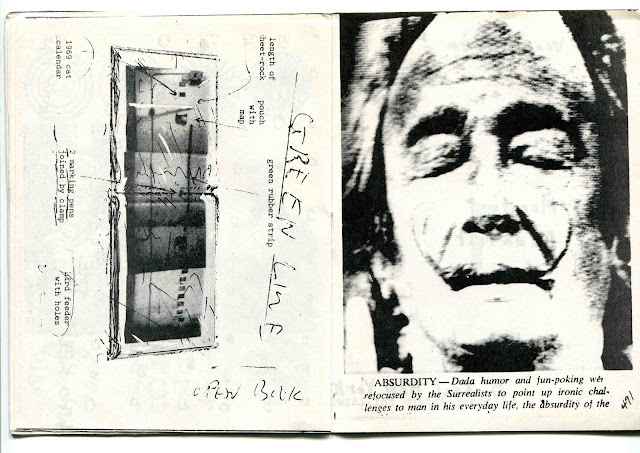 length of
heet-rock
pouch
with
map
GREEN LINE
green rubber strip
1969 cat
calendar
2 marking pens
joined by clamp
bird feeder
with holes
OPEN
ABSURDITY — Dada humor and fun-poking wer
refocused by the Surrealists to point up ironic chal-
lenges to man in his everyday life, the absurdity of the
491